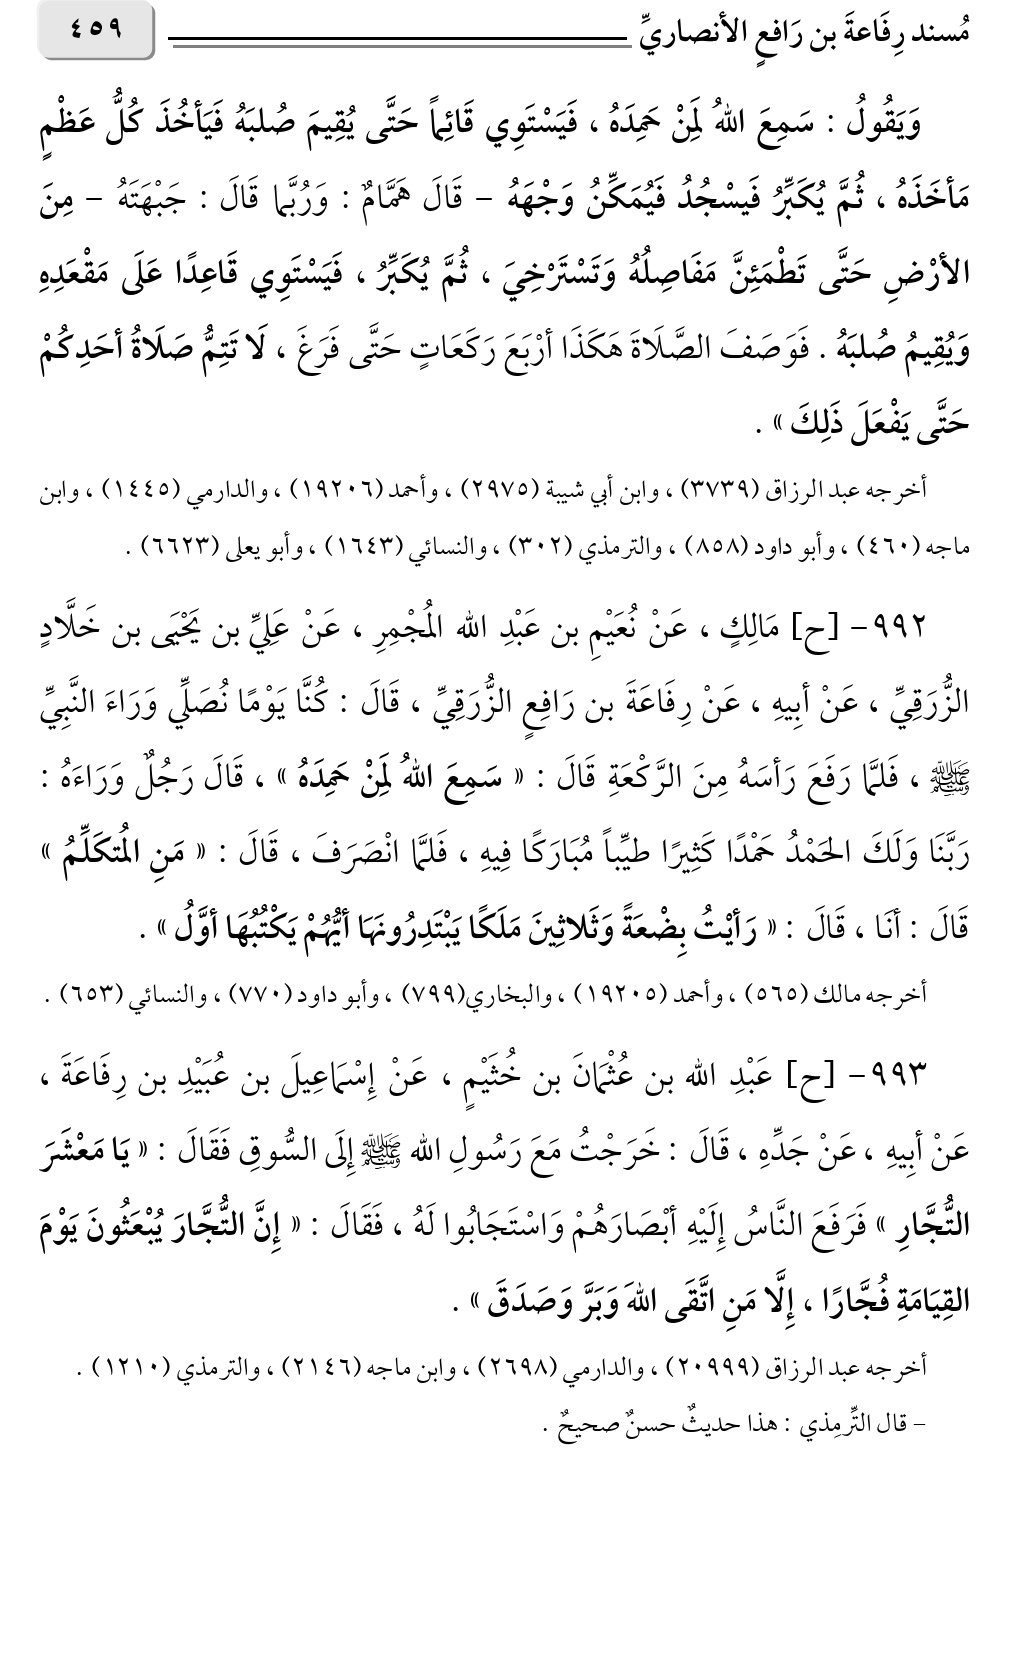 مُسند رِفَاعةَ بن رَافعٍ الأنصاريِّ
٤٥٩
وَيَقُولُ : سَمِعَ اللهُ لِمَنْ حَمِدَهُ ، فَيَسْتَوِي قَائِماً حَتَّى يُقِيمَ صُلبَهُ فَيَأخُذَ كُلُّ عَظْمٍ
مَأخَذَهُ ، ثُمَّ يُكَبِّرُ فَيسْجُدُ فَيُمَكِّنُ وَجْهَهُ – قَالَ هَمَّامٌ : وَرُبَّما قَالَ : جَبْهَتَهُ – مِنَ
الأرْضِ حَتَّى تَطْمَئِنَّ مَفَاصِلُهُ وَتَسْتَرْخِيَ ، ثُمَّ يُكَبِّرُ ، فَيَسْتَوِي قَاعِدًا عَلَى مَقْعَدِهِ
وَيُقِيمُ صُلبَهُ . فَوَصَفَ الصَّلَاةَ هَكَذَا أرْبَعَ رَكَعَاتٍ حَتَّى فَرَغَ ، لَا تَتِمُّ صَلَاةُ أحَدِكُمْ
حَتَّى يَفْعَلَ ذَلِكَ » .
أخرجه عبد الرزاق (٣٧٣٩) ، وابن أبي شيبة (٢٩٧٥) ، وأحمد (١٩٢٠٦) ، والدارمي (١٤٤٥) ، وابن
ماجه (٤٦٠) ، وأبو داود (٨٥٨) ، والترمذي (٣٠٢) ، والنسائي (١٦٤٣) ، وأبو يعلى (٦٦٢٣) .
٩٩٢– [ح] مَالِكٍ ، عَنْ نُعَيْمِ بن عَبْدِ الله المُجْمِرِ ، عَنْ عَلِيِّ بن يَحْيَى بن خَلَّادٍ
الزُّرَقِيِّ ، عَنْ أبِيهِ ، عَنْ رِفَاعَةَ بن رَافِعٍ الزُّرَقِيِّ ، قَالَ : كُنَّا يَوْمًا نُصَلِّي وَرَاءَ النَّبِيِّ
ﷺ ، فَلمَّا رَفَعَ رَأسَهُ مِنَ الرَّكْعَةِ قَالَ : « سَمِعَ اللهُ لِمَنْ حَمِدَهُ » ، قَالَ رَجُلٌ وَرَاءَهُ :
رَبَّنَا وَلَكَ الحَمْدُ حَمْدًا كَثِيرًا طيِّباً مُبَارَكًا فِيهِ ، فَلمَّا انْصَرَفَ ، قَالَ : « مَنِ المُتكَلِّمُ »
قَالَ : أنَا ، قَالَ : « رَأيْتُ بِضْعَةً وَثَلاثِينَ مَلَكًا يَبْتَدِرُونهَا أيُّهُمْ يَكْتُبُهَا أوَّلُ » .
أخرجه مالك (٥٦٥) ، وأحمد (١٩٢٠٥) ، والبخاري(٧٩٩) ، وأبو داود (٧٧٠) ، والنسائي (٦٥٣) .
٩٩٣– [ح] عَبْدِ الله بن عُثْمَانَ بن خُثَيْمٍ ، عَنْ إِسْمَاعِيلَ بن عُبَيْدِ بن رِفَاعَةَ ،
عَنْ أبِيهِ ، عَنْ جَدِّهِ ، قَالَ : خَرَجْتُ مَعَ رَسُولِ الله ﷺ إِلَى السُّوقِ فَقَالَ : « يَا مَعْشَرَ
التُّجَّارِ » فَرَفَعَ النَّاسُ إِلَيْهِ أبْصَارَهُمْ وَاسْتَجَابُوا لَهُ ، فَقَالَ : « إِنَّ التُّجَّارَ يُبْعَثُونَ يَوْمَ
القِيَامَةِ فُجَّارًا ، إِلَّا مَنِ اتَّقَى اللهَ وَبَرَّ وَصَدَقَ » .
أخرجه عبد الرزاق (٢٠٩٩٩) ، والدارمي (٢٦٩٨) ، وابن ماجه (٢١٤٦) ، والترمذي (١٢١٠) .
– قال التِّرمِذي : هذا حديثٌ حسنٌ صحيحٌ .